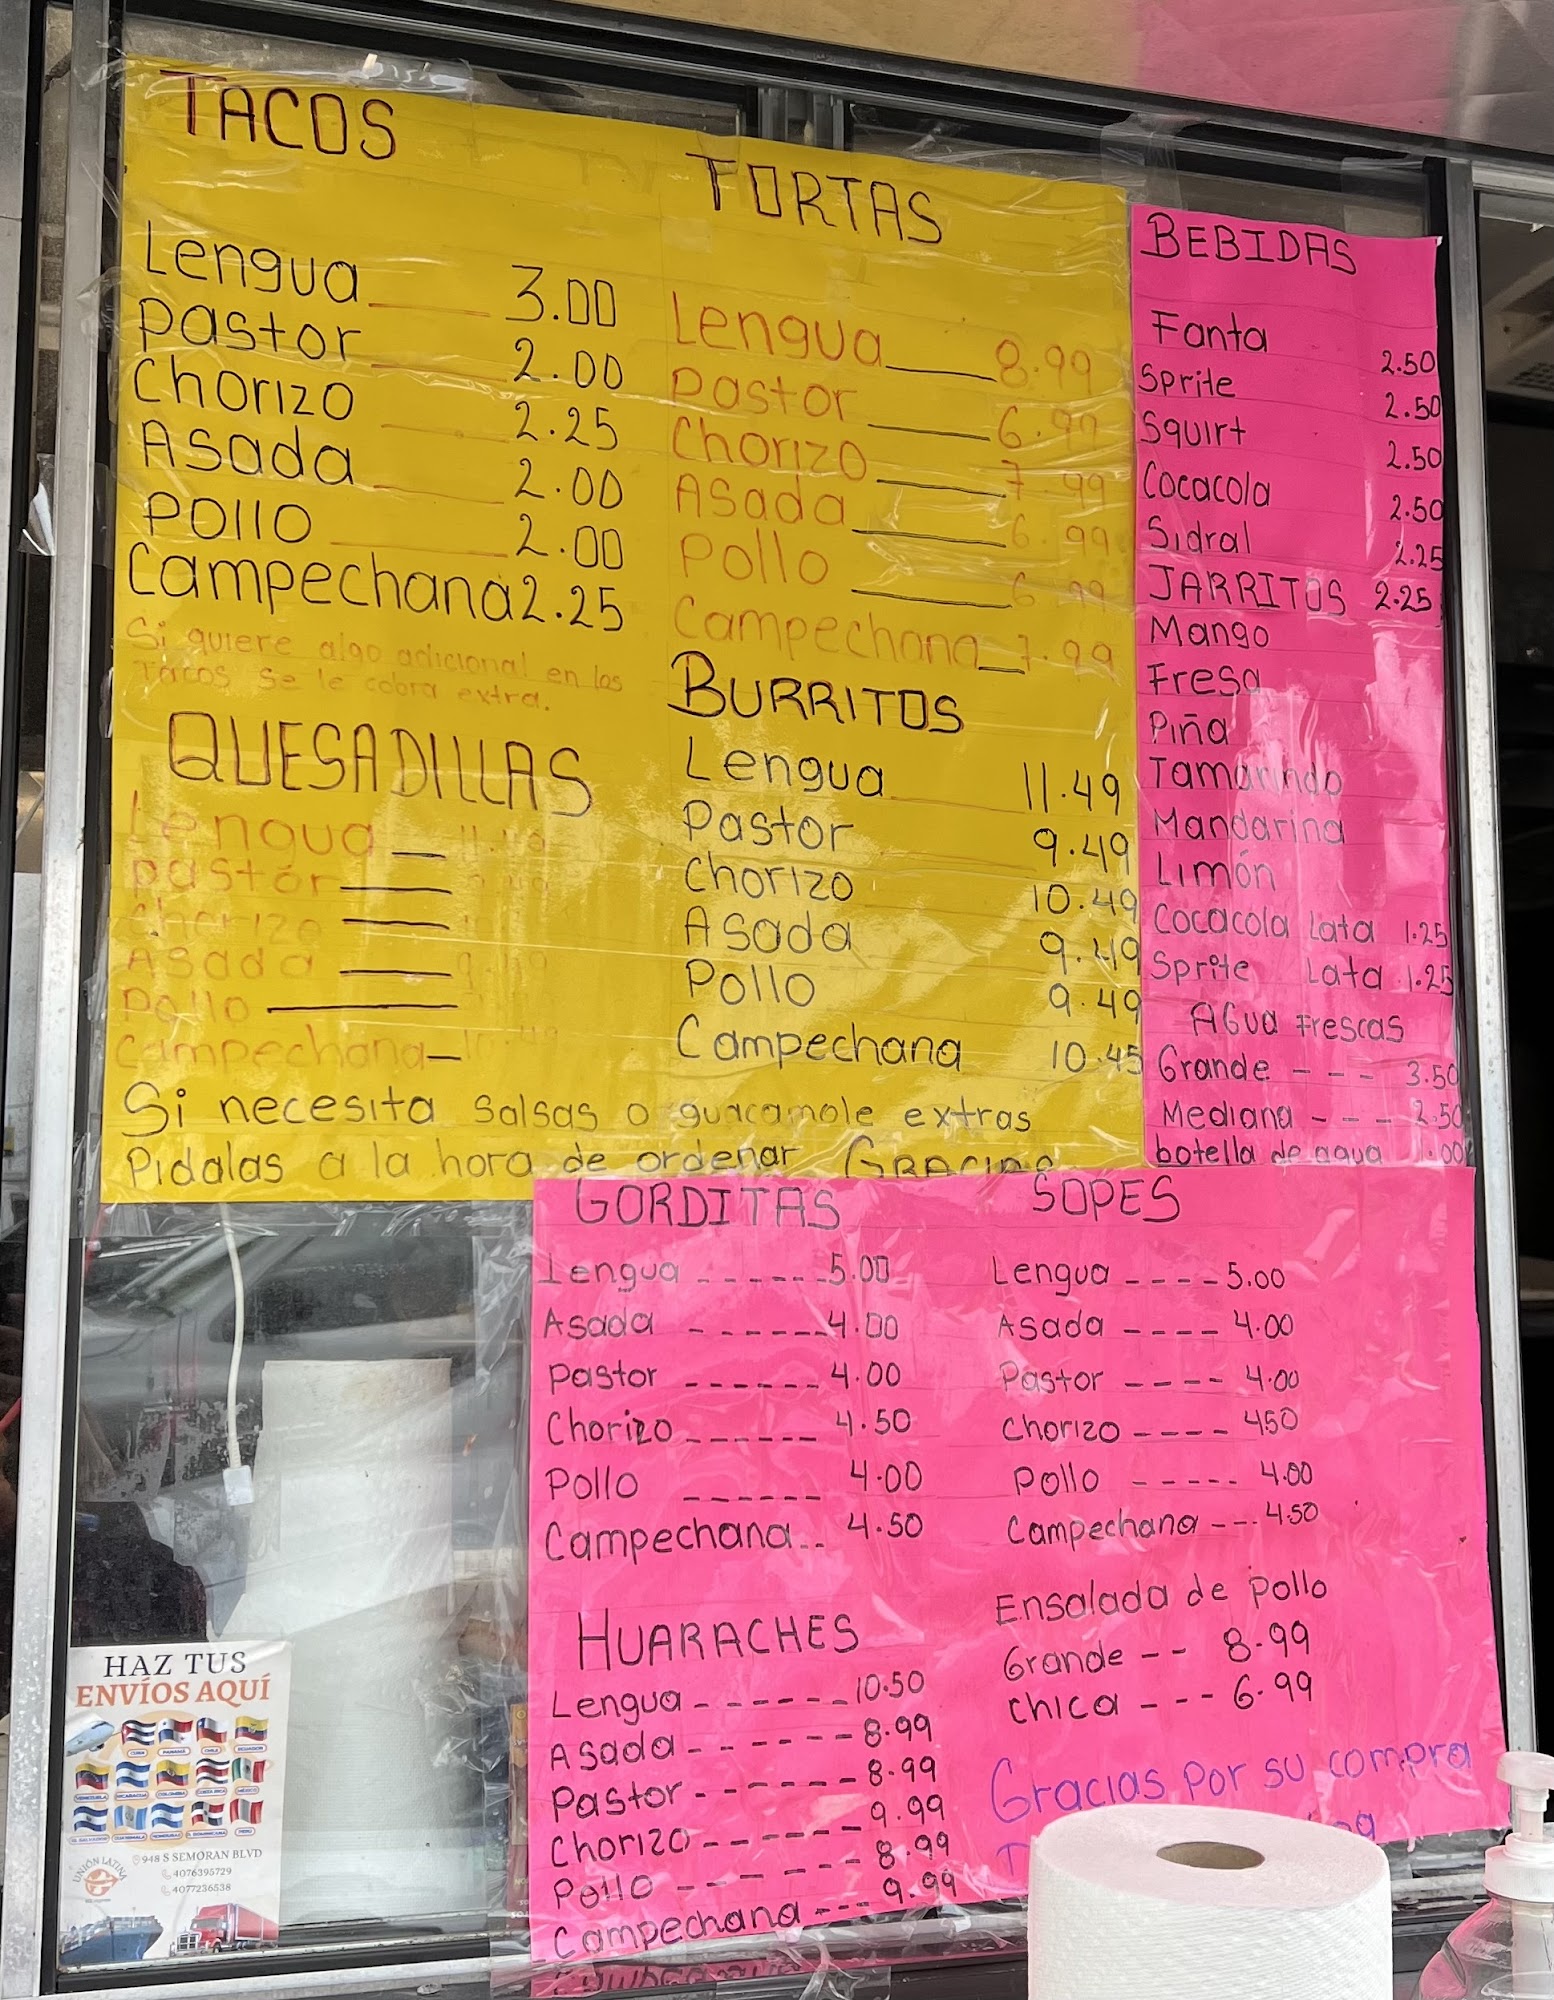 TACOS
Lengua 3.00
Pastor 2.00
Chorizo 2.25
Asada 2.00
Pollo 2.00
Campechana 2.25
Si quiere algo adicional en los
Tacos se le cobra extra.
QUESADILLAS
Lengua 11.49
Pastor 9.49
Chorizo
Asada 9.49
Pollo
Campechana 10.49
TORTAS
Lengua 8.99
Pastor 6.99
Chorizo 7.99
Asada 6.99
Pollo 6.99
Campechana 7.99
BURRITOS
Lengua 11.49
Pastor 9.49
Chorizo 10.49
Asada 9.49
Pollo 9.49
Campechana 10.45
Si necesita salsas o guacamole extras
Pidalas a la hora de ordenar GRACIAS
BEBIDAS
Fanta 2.50
Sprite 2.50
Squirt 2.50
Cocacola 2.50
Sidral 2.25
JARRITOS 2.25
Mango
Fresa
Piña
Tamarindo
Mandarina
Limón
Cocacola Lata 1.25
Sprite Lata 1.25
AGUA Frescas
Grande --- 3.50
Mediana --- 2.50
botella de agua 1.00
GORDITAS
Lengua ------ 5.00
Asada ------ 4.00
Pastor ------ 4.00
Chorizo ------ 4.50
Pollo ------ 4.00
Campechana -- 4.50
SOPES
Lengua ---- 5.00
Asada ---- 4.00
Pastor ---- 4.00
Chorizo ---- 450
Pollo ----- 4.00
Campechana --- 4.50
HUARACHES
Lengua ------ 10.50
Asada ------ 8.99
Pastor ------ 8.99
Chorizo ------ 9.99
Pollo ------ 8.99
Campechana --- 9.99
Ensalada de pollo
Grande -- 8.99
Chica --- 6.99
Gracias por su compra
HAZ TUS
ENVÍOS AQUÍ
CUBA PANAMÁ CHILE ECUADOR
VENEZUELA NICARAGUA COLOMBIA COSTA RICA MÉXICO
EL SALVADOR GUATEMALA HONDURAS R. DOMINICANA PERÚ
UNIÓN LATINA
948 S SEMORAN BLVD
4076395729
4077236538